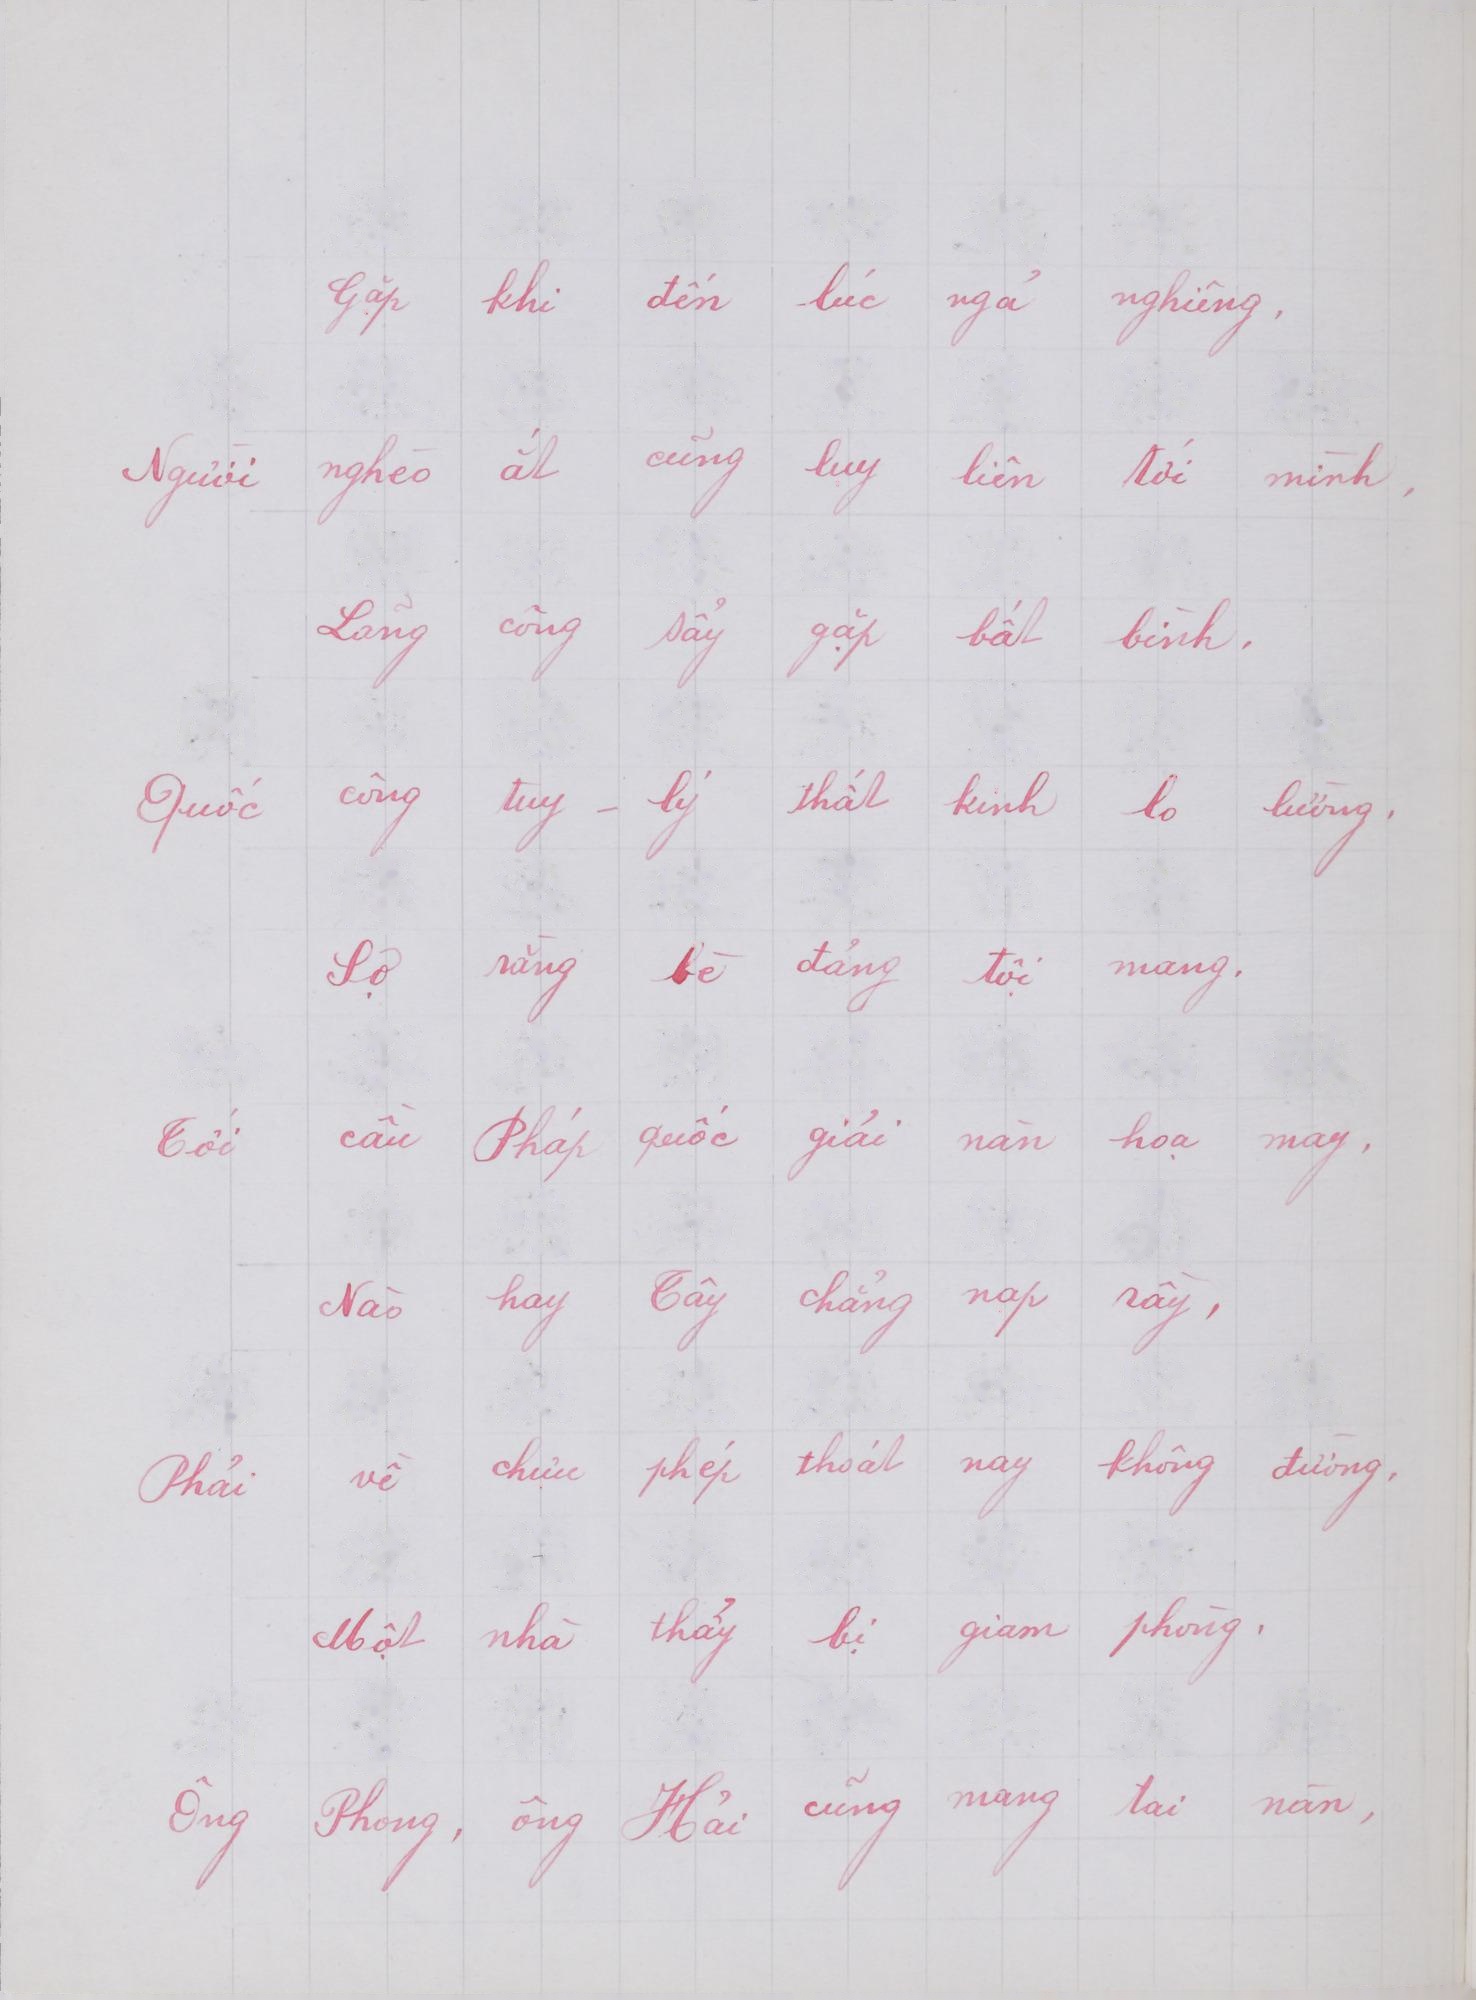 Gặp khi đến lúc ngả nghiêng,
Người nghèo ắt cũng luỵ liên tới mình,
Lãng công sẩy gặp bất bình.
Quốc công tuy-lý thất kinh lo lường.
Sợ rằng bè đảng tội mang.
Tới cầu Pháp quốc giải nàn hoạ may,
Nào hay Tây chẳng nạp rầy,
Phải về chịu phép thoát nay không đường,
Một nhà thảy bị giam phòng.
Ông Phong, ông Hải cũng mang tai nàn,